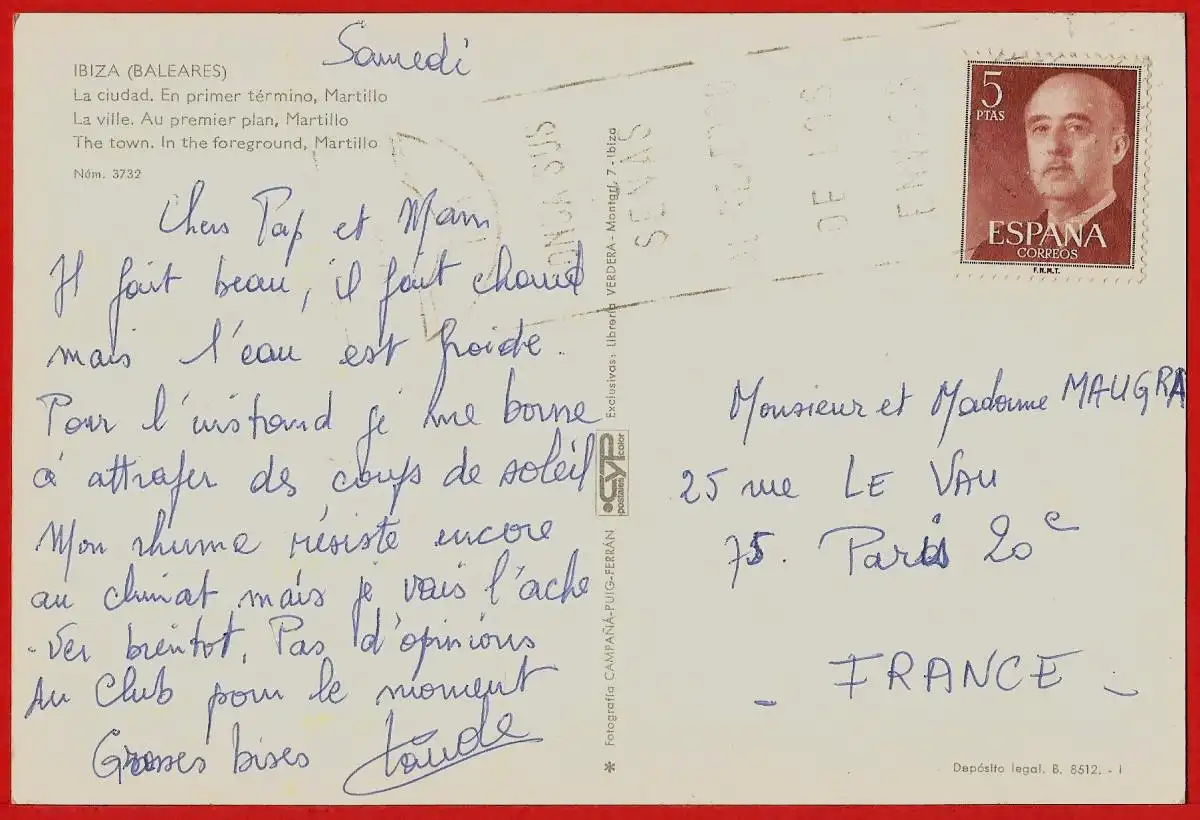 Samedi
IBIZA (BALEARES)
La ciudad. En primer término, Martillo
La ville. Au premier plan, Martillo
The town. In the foreground, Martillo
Núm. 3732
Chers Pap et Mam
Il fait beau, il fait chaud
mais l'eau est froide.
Pour l'instand je me borne
à attraper des coups de soleil
Mon rhume résiste encore
au climat mais je vais l'ache
-ver bientot. Pas d'opinions
du Club pour le moment
Grosses bises
Exclusivas: Librería VERDERA - Montgrí, 7 - Ibiza
CYP
postales color
Fotografía CAMPAÑÁ-PUIG-FERRÁN
SEÑAS
DE LOS
5
PTAS
ESPAÑA
CORREOS
F.N.M.T.
Monsieur et Madame MAUGRA
25 rue LE VAU
75. Paris 20e
- FRANCE -
Depósito legal. B. 8512. - I